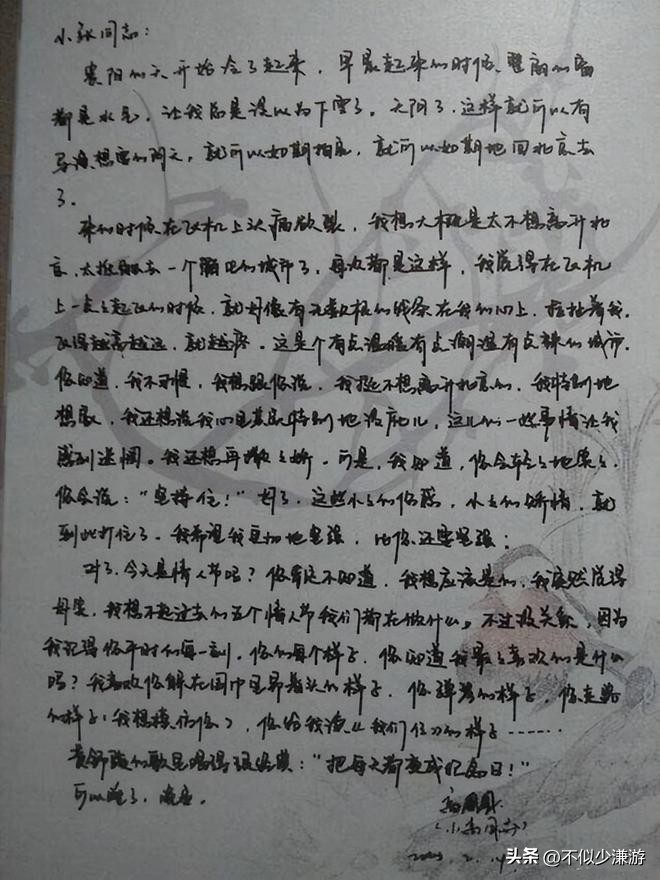 小张同志：
襄阳的天开始冷了起来，早晨起来的时候，里的窗
都是水气，让我总是误以为下雪了。天阴了，这样就可以有
导演想要的阴天，就可以如期拍完，就可以如期地回北京去
了。
来的时候在飞机上头痛欲裂，我想大概是太不想离开北
京，太抵触去一个陌生的城市了，每次都是这样，我觉得在飞机
上一点点起飞的时候，就好像有无数根的线条在我们心上，拉扯着我，
飞得越高越远，就越疼。这是个有点温暖有点潮湿有点辣的城市，
你知道，我不习惯，我想跟你说，我挺不想离开北京的，我特别地
想家，我还想说我心里其实特别地没底儿，这儿的一些事情让我
感到迷惘。我还想再撒撒娇。可是，我知道，你会轻轻地笑了，
你会说：“坚持住！”好了，这些小小的伤感，小小的矫情，就
到此打住了。我希望我更加地坚强，比你还要坚强；
对了，今天是情人节吗？你肯定不知道，我想应该是的，我突然觉得
好笑，我想不起过去的五个情人节我们都在做什么。不过没关系，因为
我记得你平时的每一刻，你的每个样子，你知道我最喜欢的是什么
吗？我喜欢你躲在围巾里晃着头的样子，你弹琴的样子，你走路
的样子（我想模仿你），你给我读《我们仨》的样子……
黄舒骏的歌里唱得很经典：“把每天都变成纪念日！”
可以睡了，晚安。
高圆圆
（小高同志）
2.14
头条 @不似少谦游